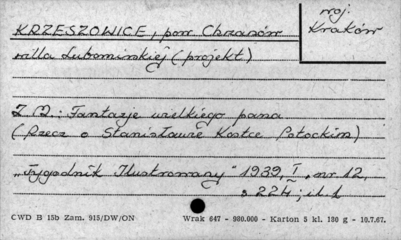 woj.
Kraków
KRZESZOWICE, pow. Chrzanów
willa Lubomirskiej (projekt)
Z. M.: Fantazje wielkiego pana
(Rzecz o Stanisławie Kostce Potockim)
„Tygodnik Ilustrowany" 1939, I, nr. 12,
s 224; il. 1
CWD B 15b Zam. 915/DW/ON Wrak 647 - 980.000 - Karton 5 kl. 180 g - 10.7.67.